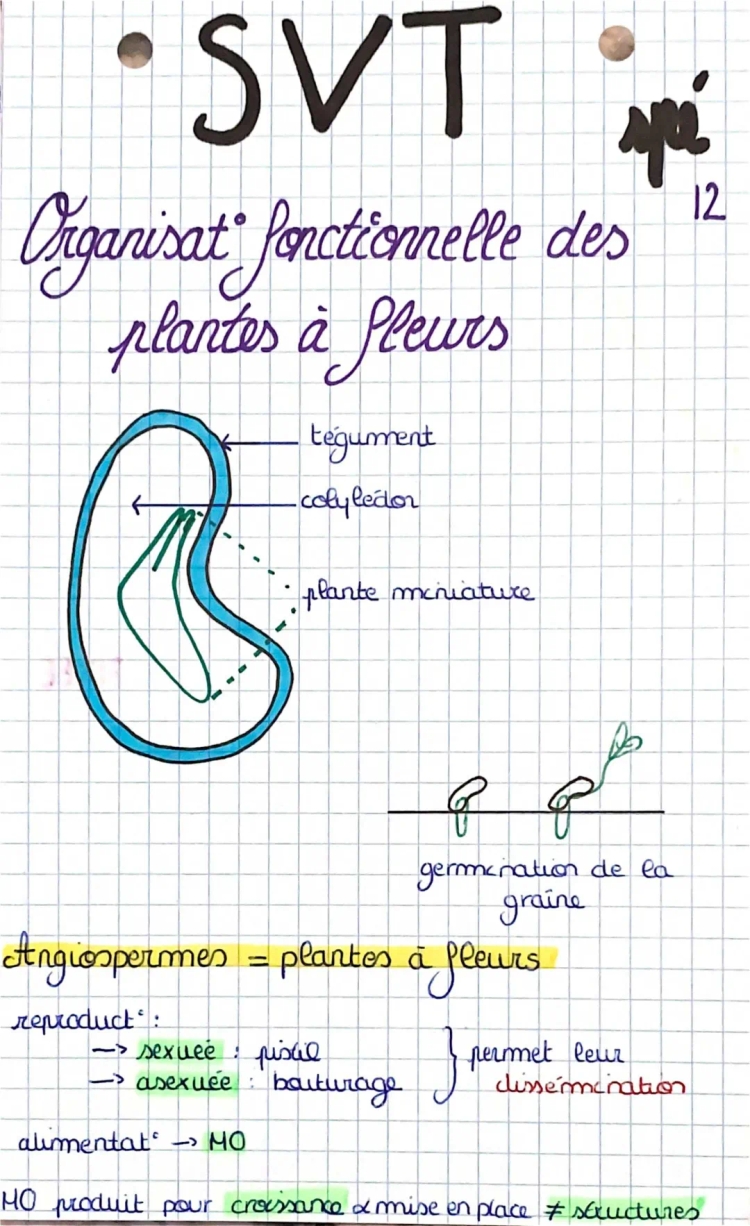 SVT
spé
12
Organisat° fonctionnelle des
plantes à fleurs
tégument
cotylédon
plante miniature
germination de la
graine
Angiospermes = plantes à fleurs
reproduct° :
→ sexuée : pistil
→ asexuée : bouturage
} permet leur
dissémination
alimentat° → MO
MO produit pour croissance & mise en place ≠ structures